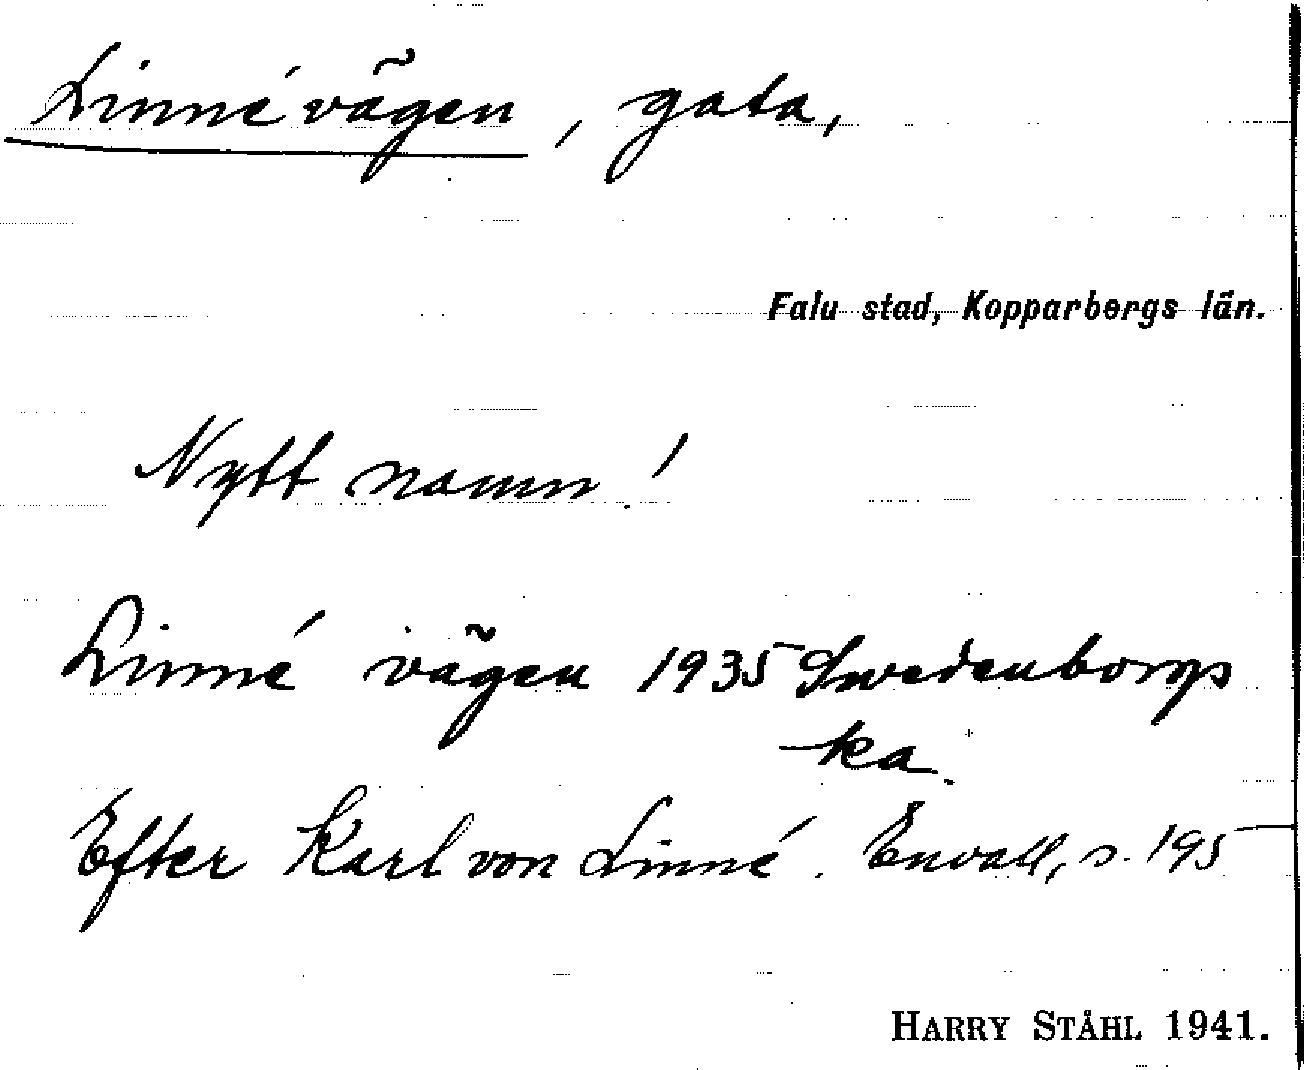 Linnévägen, gata,
Falu stad, Kopparbergs län.
Nytt namn!
Linné vägen 1935 Swedenborgs
ka.
Efter Karl von Linné. Envall, s. 195
HARRY STÅHL 1941.